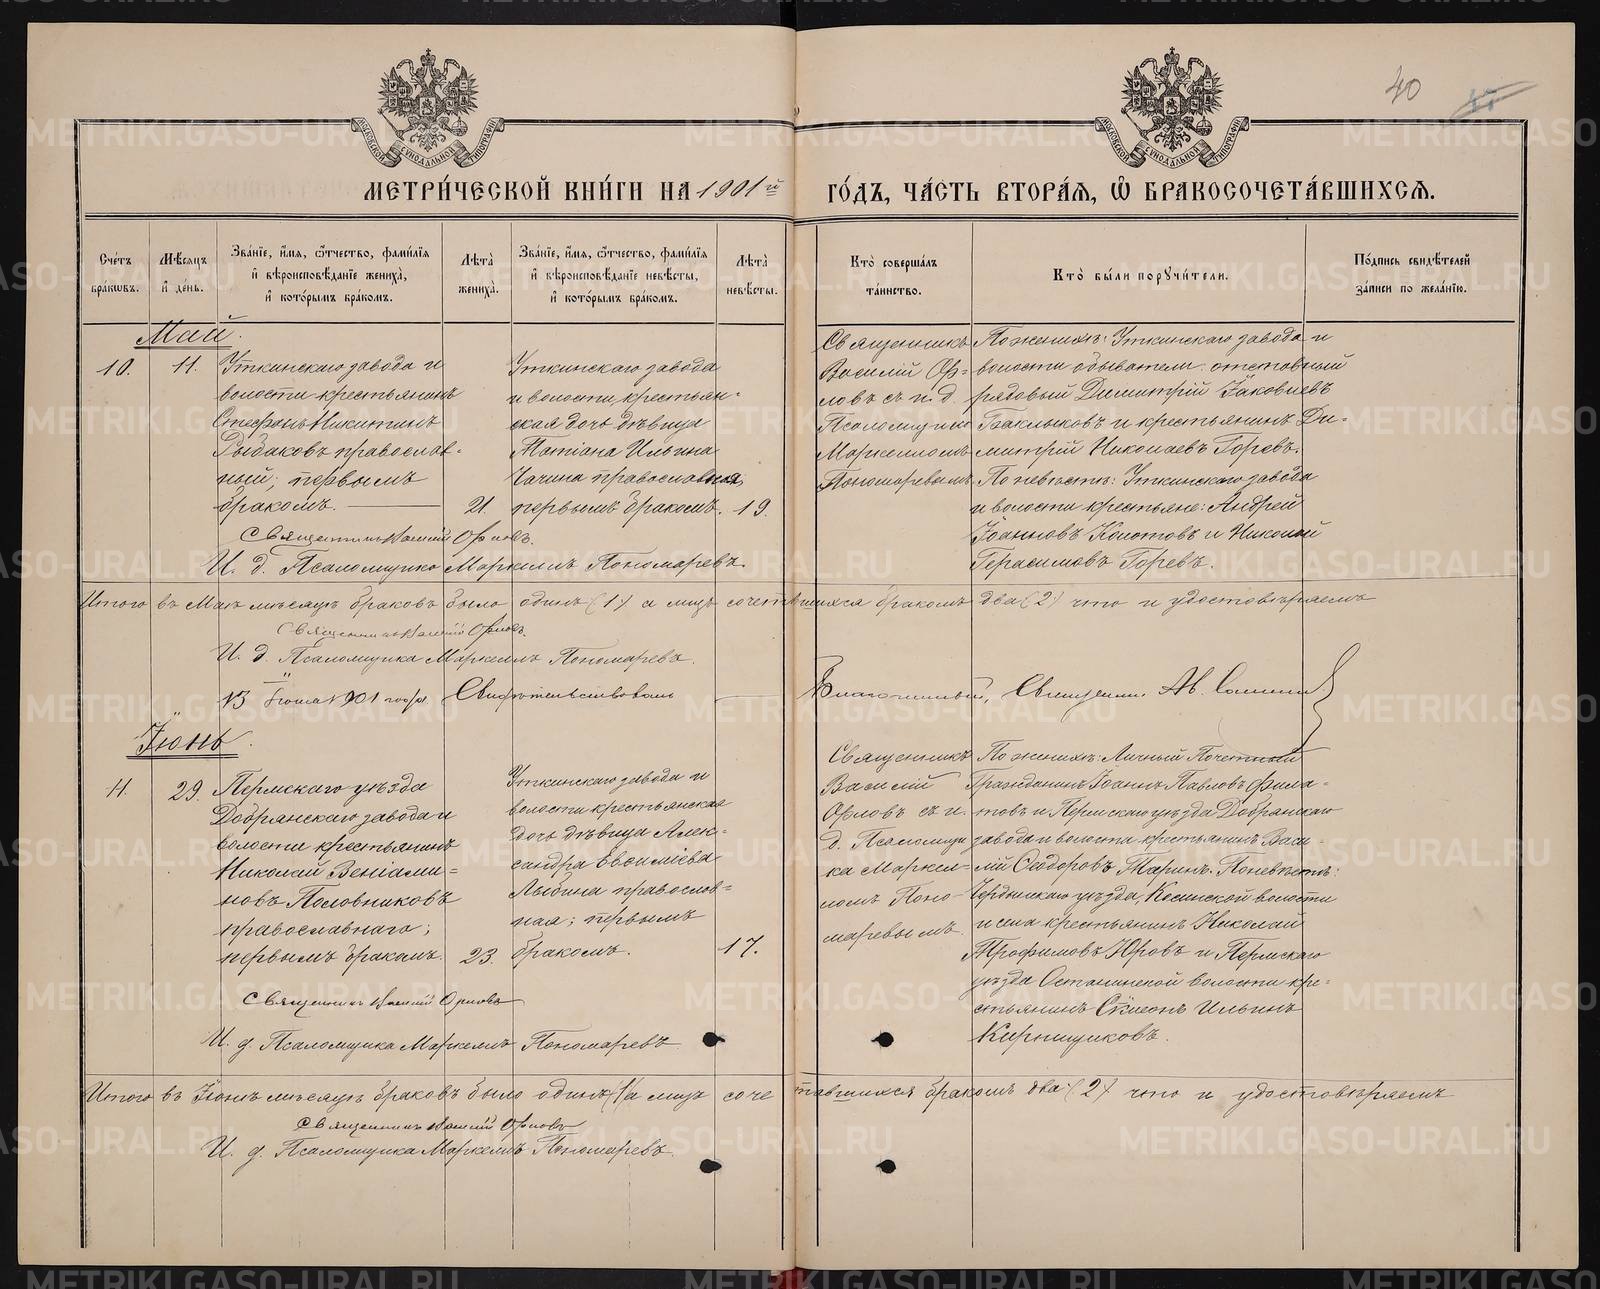 40
МЕТРИ́ЧЕСКОЙ КНИ́ГИ НА 1901й ГО́ДЪ, ЧА́СТЬ ВТОРА́Я, Ѽ БРАКОСОЧЕТА́ВШИХСЯ.
МОСКОВСКОЙ СѴНОДАЛЬНОЙ ТИПОГРАФІИ
МОСКОВСКОЙ СѴНОДАЛЬНОЙ ТИПОГРАФІИ
Сче́тъ бра́ковъ.
Мѣ́сяцъ и҆ де́нь.
Зва́нїе, и҆́мя, ѻ҆́тчество, фами́лїя
и҆ вѣроисповѣ́данїе жениха̀,
и҆ кото́рымъ бра́комъ.
Лѣта̀ жениха̀.
Зва́нїе, и҆́мя, ѻ҆́тчество, фами́лїя
и҆ вѣроисповѣ́данїе невѣ́сты,
и҆ кото́рымъ бра́комъ.
Лѣта̀ невѣ́сты.
Кто̀ соверша́лъ
та́инство.
Кто̀ бы́ли порꙋчи́тели.
По́дпись свидѣ́телей
за́писи по жела́нїю.
Май.
10.
11.
Уткинскаго завода и
волости крестьянинъ
Стефанъ Никитинъ
Рыбаковъ православ-
ный; первымъ
бракомъ.
21.
Уткинскаго завода
и волости, крестьян-
ская дочь дѣвица
Татіана Ильина
Чачина православная,
первымъ бракомъ.
19.
Священникъ
Василій Ор-
ловъ съ и. д
Псаломщика
Маркелломъ
Пономаревымъ
По женихѣ: Уткинскаго завода и
волости обыватели: отставный
рядовый Димитрій Іаковлевъ
Баклыковъ и крестьянинъ Ди-
митрій Николаевъ Горевъ.
По невѣстѣ: Уткинскаго завода
и волости крестьяне: Андрей
Іоанновъ Копотовъ и Николай
Герасимовъ Горевъ.
Священникъ Василій Орловъ.
И. д. Псаломщика Маркеллъ Пономаревъ
Итого въ Маѣ мѣсяцѣ браковъ было одинъ (1) а лицъ сочетавшихся бракомъ два (2) что и удостовѣряемъ
Священникъ Василій Орловъ.
И. д. Псаломщика Маркеллъ Пономаревъ.
13 Іюня 1901 года Свидѣтельствовалъ
Благочинный, Священникъ Ав.
Іюнь.
11.
29.
Пермскаго уѣзда
Добрянскаго завода и
волости крестьянинъ
Николай Веніами-
новъ Половниковъ
православнаго;
первымъ бракомъ.
23.
Уткинскаго завода и
волости крестьянская
дочь дѣвица Алек-
сандра Евѳиміева
Лыбина православ-
ная; первымъ
бракомъ.
17.
Священникъ
Василій
Орловъ съ и.
д. Псаломщи
ка Маркел-
ломъ Поно-
маревымъ.
По женихѣ: Личный Почетный
Гражданинъ Іоаннъ Павловъ Фила-
товъ и Пермскаго уѣзда Добрянскаго
завода и волости крестьянинъ Васи-
лій Сидоровъ Таринъ. По невѣстѣ:
Чердынскаго уѣзда, Косинской волости
и села крестьянинъ Николай
Трофимовъ Юровъ и Пермскаго
уѣзда Останинской волости кре-
стьянинъ Симеонъ Ильинъ
Кирпищиковъ.
Священникъ Василій Орловъ
И. д. Псаломщика Маркеллъ Пономаревъ
Итого въ Іюнѣ мѣсяцѣ браковъ было одинъ (1) а лицъ сочетавшихся бракомъ два (2) что и удостовѣряемъ
Священникъ Василій Орловъ
И. д. Псаломщика Маркеллъ Пономаревъ.
METRIKI.GASO-URAL.RU